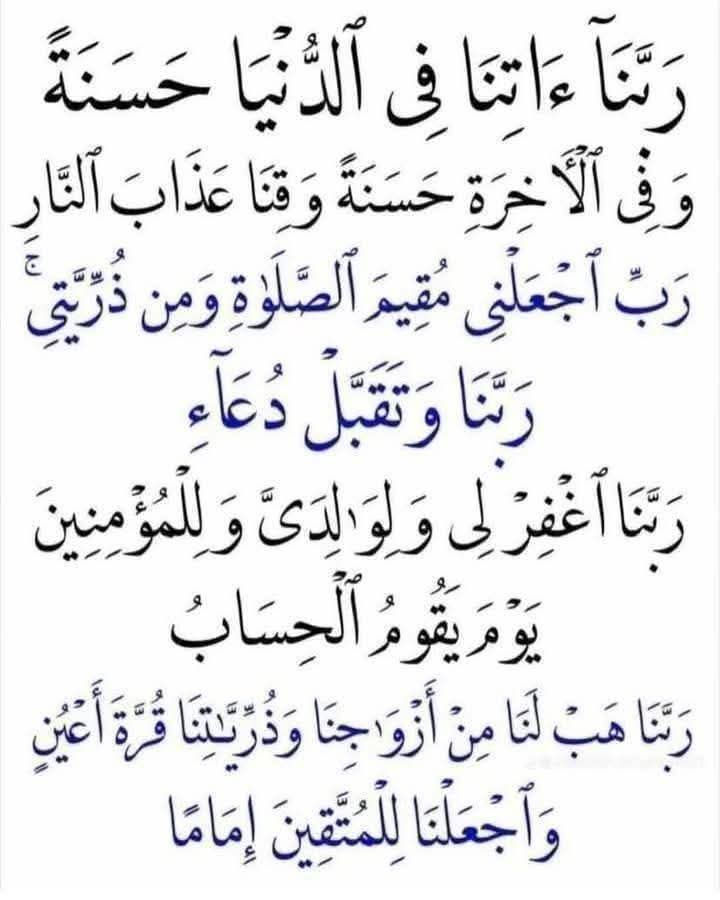 رَبَّنَآ ءَاتِنَا فِى ٱلدُّنْيَا حَسَنَةً
وَفِى ٱلْأَخِرَةِ حَسَنَةً وَقِنَا عَذَابَ ٱلنَّارِ
رَبِّ ٱجْعَلْنِى مُقِيمَ ٱلصَّلَوٰةِ وَمِن ذُرِّيَّتِى ۚ
رَبَّنَا وَتَقَبَّلْ دُعَآءِ
رَبَّنَا ٱغْفِرْ لِى وَلِوَٰلِدَىَّ وَلِلْمُؤْمِنِينَ
يَوْمَ يَقُومُ ٱلْحِسَابُ
رَبَّنَا هَبْ لَنَا مِنْ أَزْوَٰجِنَا وَذُرِّيَّـٰتِنَا قُرَّةَ أَعْيُنٍ
وَٱجْعَلْنَا لِلْمُتَّقِينَ إِمَامًا